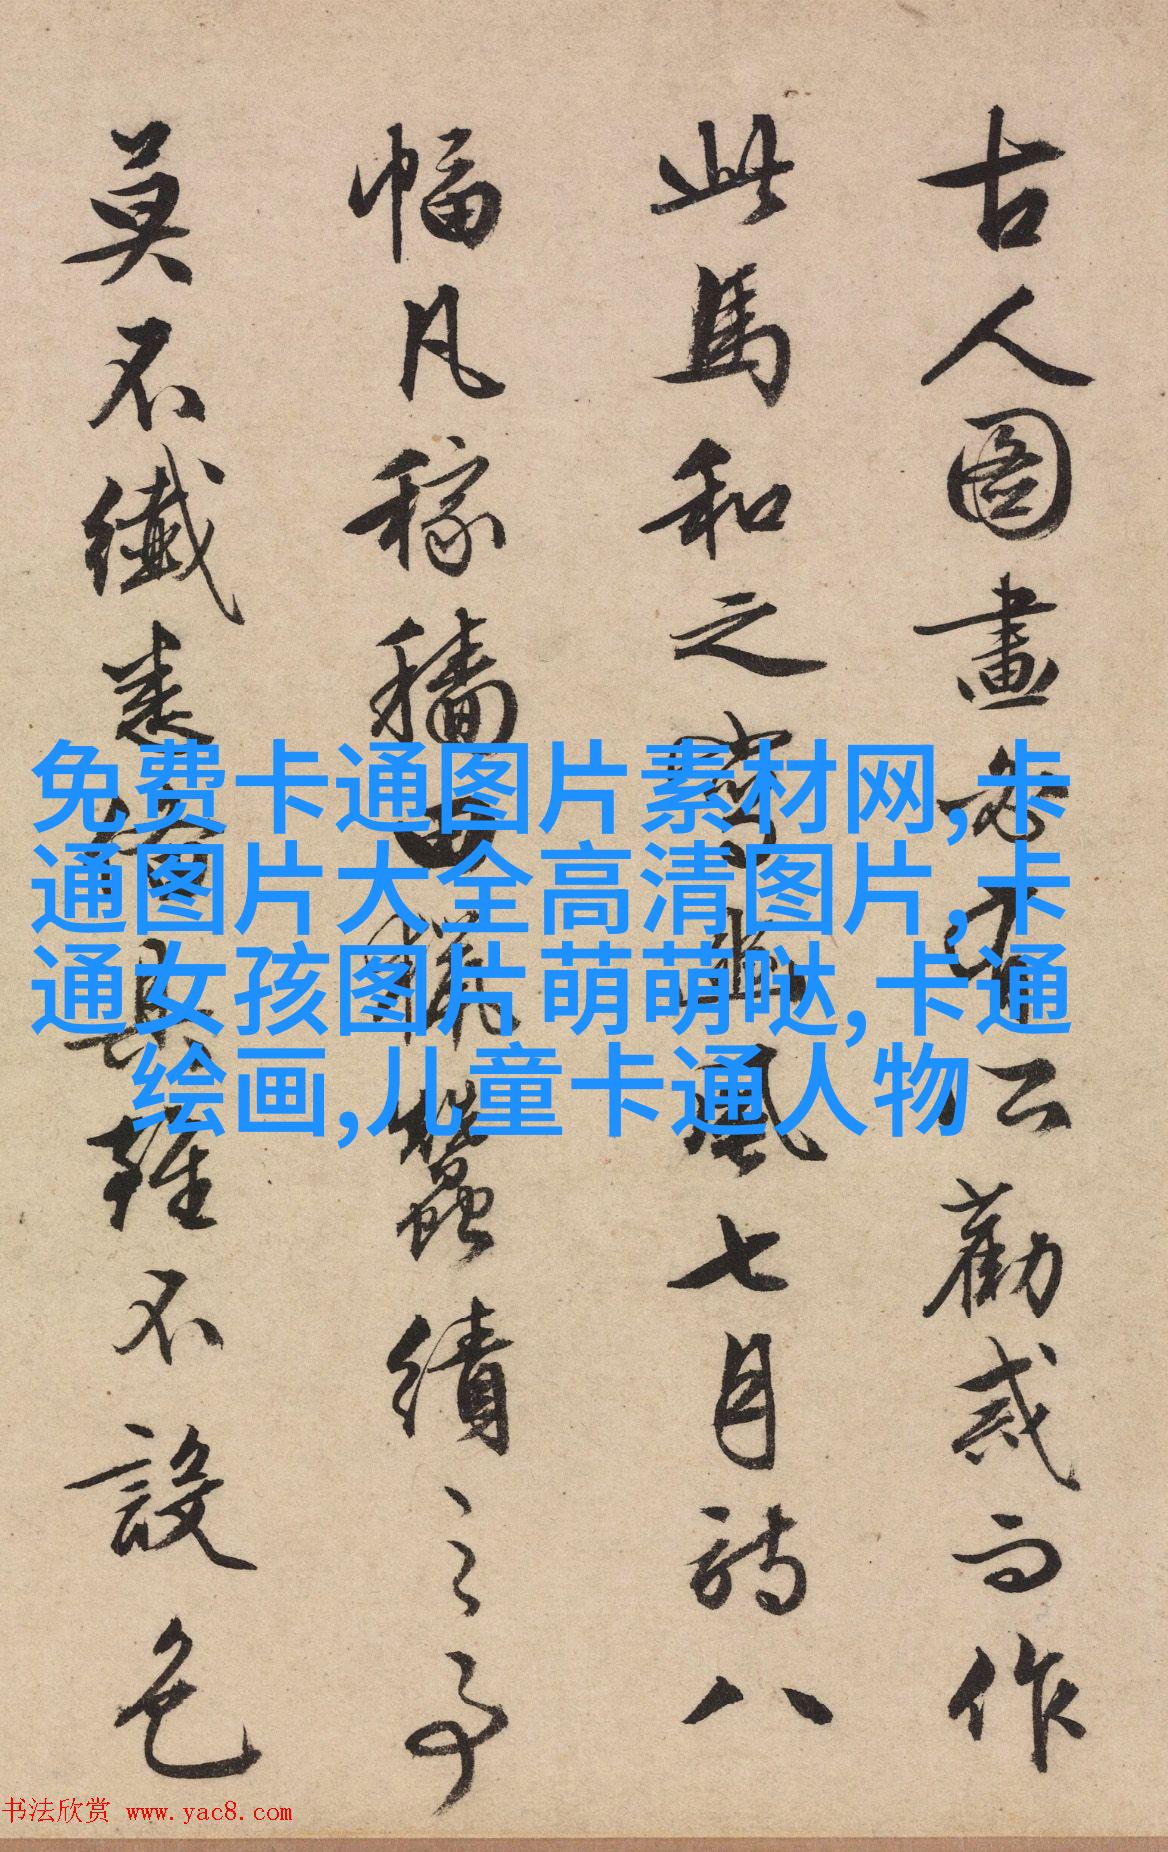 古人圖畫必有勸戒而作
此馬和之豳風七月詩八
幅凡稼穡田獵蠶績之事
莫不纖悉備具雖不設色
免费卡通图片素材网,卡
通图片大全高清图片,卡
通女孩图片萌萌哒,卡通
绘画,儿童卡通人物
书法欣赏 www.yac8.com